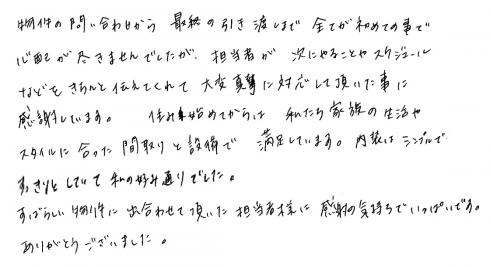 物件の問い合わせから 最終の引き渡しまで 全てが初めての事で
心配が尽きませんでしたが、担当者が 次にやることやスケジュール
などをきちんと伝えてくれて 大変真摯に対応して頂いた事に
感謝しています。 住み始めてからは 私たち家族の生活や
スタイルに合った間取りと設備で 満足しています。内装はシンプルで
すっきりとしていて 私の好み通りでした。
すばらしい物件に出合わせて頂いた担当者様に 感謝の気持ちでいっぱいです。
ありがとうございました。